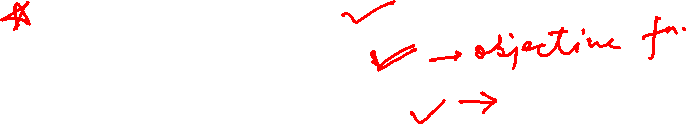 → objective fn.